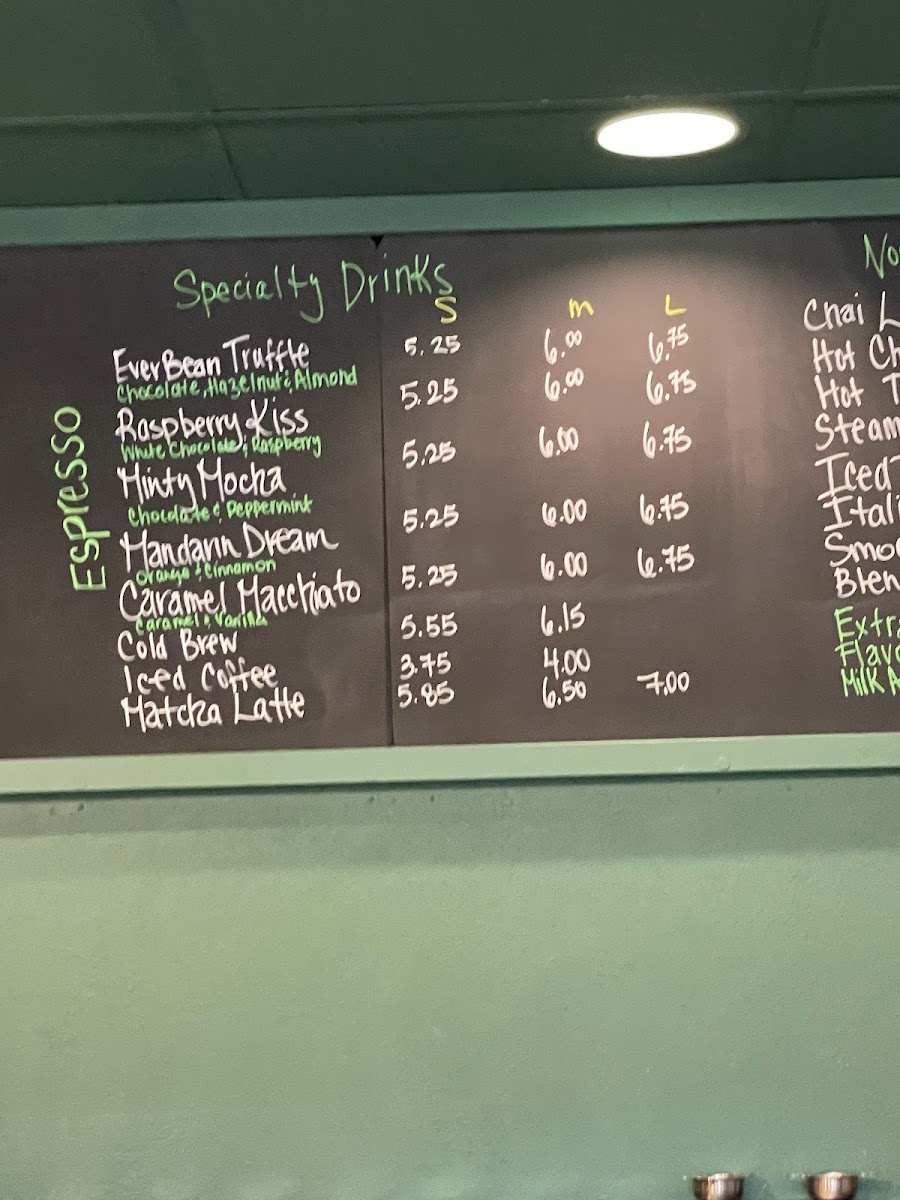 Specialty Drinks
S m L
Espresso
EverBean Truffle 5.25 6.00 6.75
Chocolate, Hazelnut & Almond
Raspberry Kiss 5.25 6.00 6.75
White Chocolate & Raspberry
Minty Mocha 5.25 6.00 6.75
Chocolate & Peppermint
Mandarin Dream 5.25 6.00 6.75
Orange & Cinnamon
Caramel Macchiato 5.25 6.00 6.75
Caramel & Vanilla
Cold Brew 5.55 6.15
Iced Coffee 3.75 4.00
Matcha Latte 5.85 6.50 7.00
No
Chai L
Hot Ch
Hot T
Steam
Iced
Itali
Smo
Blen
Extra
Flavo
Milk A